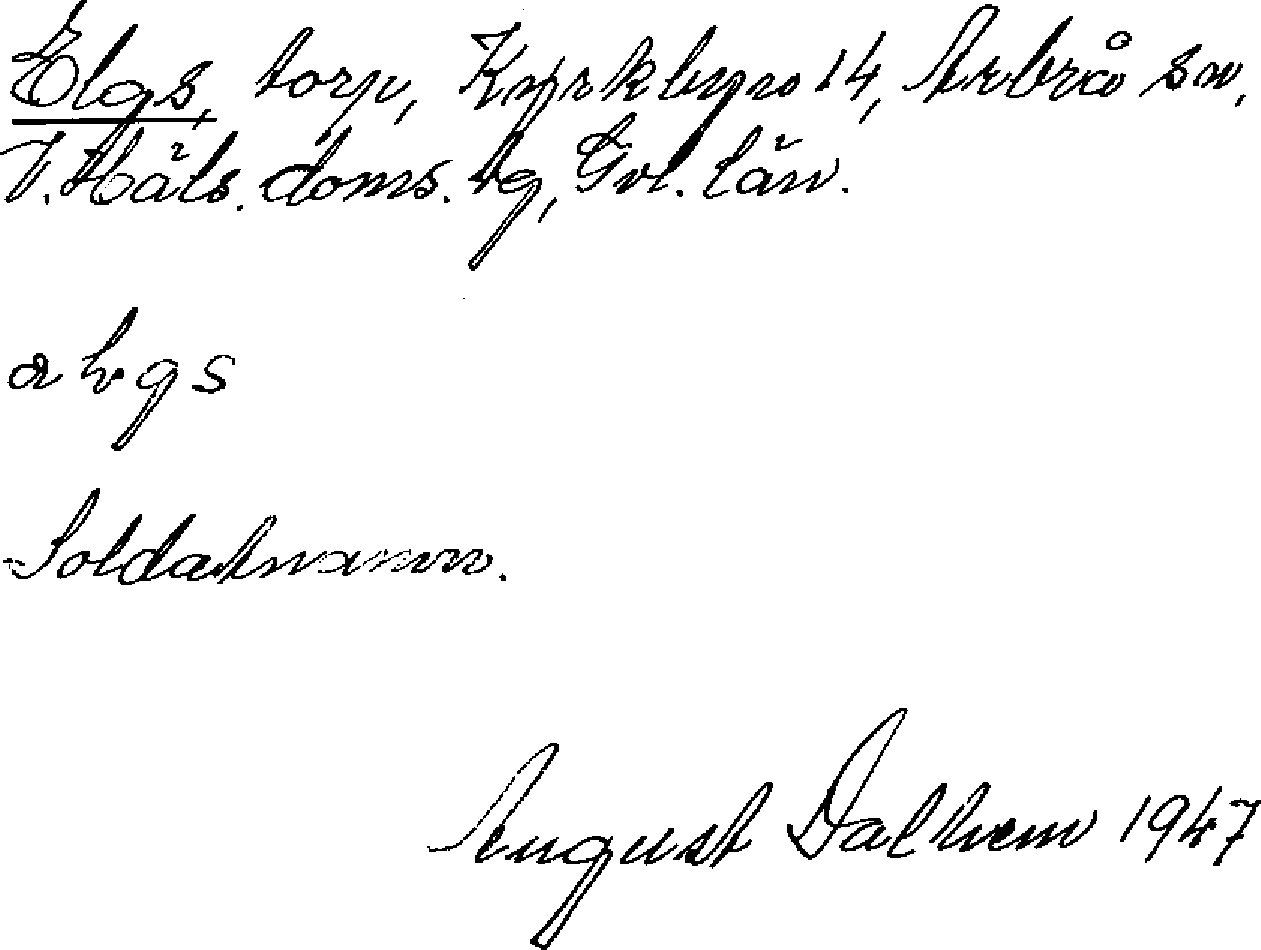 Elgs, torp, Kyrkbyn 14, Arbrå sn,
V. Häls. doms. tg, Gvl. län.
Soldatnamn.
August Dalhem 1947